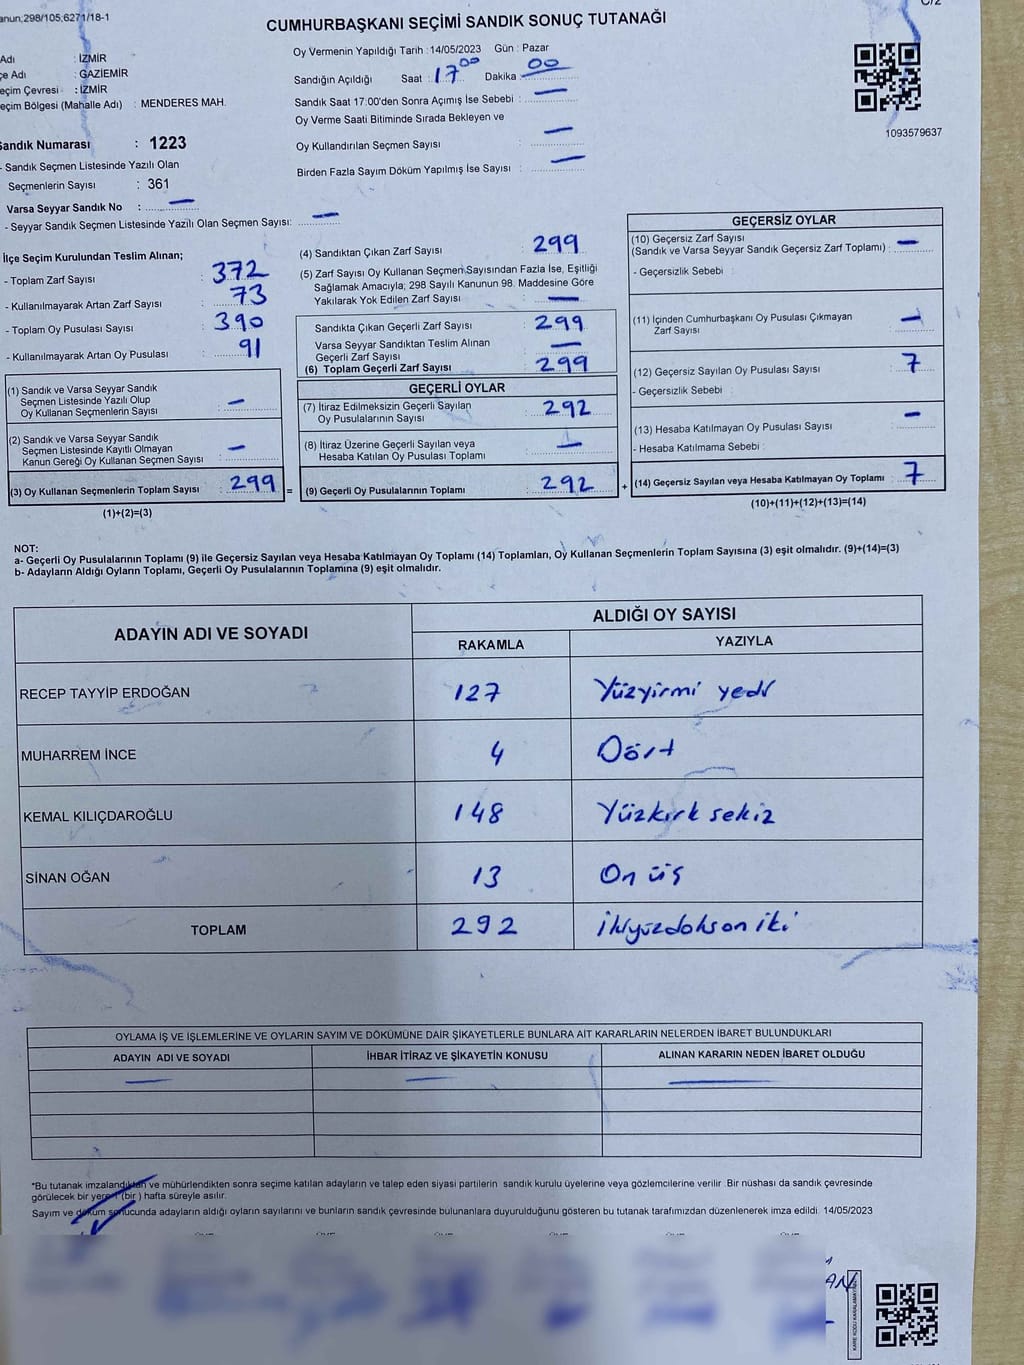 anun;298/105;6271/18-1
CUMHURBAŞKANI SEÇİMİ SANDIK SONUÇ TUTANAĞI
Adı : İZMİR
çe Adı : GAZİEMİR
eçim Çevresi : İZMİR
eçim Bölgesi (Mahalle Adı) : MENDERES MAH.
Sandık Numarası : 1223
- Sandık Seçmen Listesinde Yazılı Olan
Seçmenlerin Sayısı : 361
Varsa Seyyar Sandık No : —
- Seyyar Sandık Seçmen Listesinde Yazılı Olan Seçmen Sayısı: —
Oy Vermenin Yapıldığı Tarih : 14/05/2023 Gün : Pazar
Sandığın Açıldığı Saat : 17 00 Dakika : 00
Sandık Saat 17:00'den Sonra Açımış İse Sebebi : —
Oy Verme Saati Bitiminde Sırada Bekleyen ve
Oy Kullandırılan Seçmen Sayısı : —
Birden Fazla Sayım Döküm Yapılmış İse Sayısı : —
1093579637
İlçe Seçim Kurulundan Teslim Alınan;
- Toplam Zarf Sayısı : 372
- Kullanılmayarak Artan Zarf Sayısı : 73
- Toplam Oy Pusulası Sayısı : 390
- Kullanılmayarak Artan Oy Pusulası : 91
(1) Sandık ve Varsa Seyyar Sandık
Seçmen Listesinde Yazılı Olup
Oy Kullanan Seçmenlerin Sayısı : —
(2) Sandık ve Varsa Seyyar Sandık
Seçmen Listesinde Kayıtlı Olmayan
Kanun Gereği Oy Kullanan Seçmen Sayısı : —
(3) Oy Kullanan Seçmenlerin Toplam Sayısı : 299 =
(1)+(2)=(3)
(4) Sandıktan Çıkan Zarf Sayısı : 299
(5) Zarf Sayısı Oy Kullanan Seçmen Sayısından Fazla İse, Eşitliği
Sağlamak Amacıyla; 298 Sayılı Kanunun 98. Maddesine Göre
Yakılarak Yok Edilen Zarf Sayısı : —
Sandıkta Çıkan Geçerli Zarf Sayısı : 299
Varsa Seyyar Sandıktan Teslim Alınan
Geçerli Zarf Sayısı : —
(6) Toplam Geçerli Zarf Sayısı : 299
GEÇERLİ OYLAR
(7) İtiraz Edilmeksizin Geçerli Sayılan
Oy Pusulalarının Sayısı : 292
(8) İtiraz Üzerine Geçerli Sayılan veya
Hesaba Katılan Oy Pusulası Toplamı : —
(9) Geçerli Oy Pusulalarının Toplamı : 292 +
GEÇERSİZ OYLAR
(10) Geçersiz Zarf Sayısı
(Sandık ve Varsa Seyyar Sandık Geçersiz Zarf Toplamı) : —
- Geçersizlik Sebebi :
(11) İçinden Cumhurbaşkanı Oy Pusulası Çıkmayan
Zarf Sayısı : —
(12) Geçersiz Sayılan Oy Pusulası Sayısı : 7
- Geçersizlik Sebebi :
(13) Hesaba Katılmayan Oy Pusulası Sayısı : —
- Hesaba Katılmama Sebebi :
(14) Geçersiz Sayılan veya Hesaba Katılmayan Oy Toplamı : 7
(10)+(11)+(12)+(13)=(14)
NOT:
a- Geçerli Oy Pusulalarının Toplamı (9) ile Geçersiz Sayılan veya Hesaba Katılmayan Oy Toplamı (14) Toplamları, Oy Kullanan Seçmenlerin Toplam Sayısına (3) eşit olmalıdır. (9)+(14)=(3)
b- Adayların Aldığı Oyların Toplamı, Geçerli Oy Pusulalarının Toplamına (9) eşit olmalıdır.
ADAYIN ADI VE SOYADI ALDIĞI OY SAYISI
RAKAMLA YAZIYLA
RECEP TAYYİP ERDOĞAN 127 Yüzyirmi yedi
MUHARREM İNCE 4 Dört
KEMAL KILIÇDAROĞLU 148 Yüzkırk sekiz
SİNAN OĞAN 13 On üş
TOPLAM 292 İkiyüzdokson iki
OYLAMA İŞ VE İŞLEMLERİNE VE OYLARIN SAYIM VE DÖKÜMÜNE DAİR ŞİKAYETLERLE BUNLARA AİT KARARLARIN NELERDEN İBARET BULUNDUKLARI
ADAYIN ADI VE SOYADI İHBAR İTİRAZ VE ŞİKAYETİN KONUSU ALINAN KARARIN NEDEN İBARET OLDUĞU
— — —
*Bu tutanak imzalandıktan ve mühürlendikten sonra seçime katılan adayların ve talep eden siyasi partilerin sandık kurulu üyelerine veya gözlemcilerine verilir. Bir nüshası da sandık çevresinde
görülecek bir yere 1 (bir) hafta süreyle asılır.
Sayım ve döküm sonucunda adayların aldığı oyların sayılarını ve bunların sandık çevresinde bulunanlara duyurulduğunu gösteren bu tutanak tarafımızdan düzenlenerek imza edildi. 14/05/2023